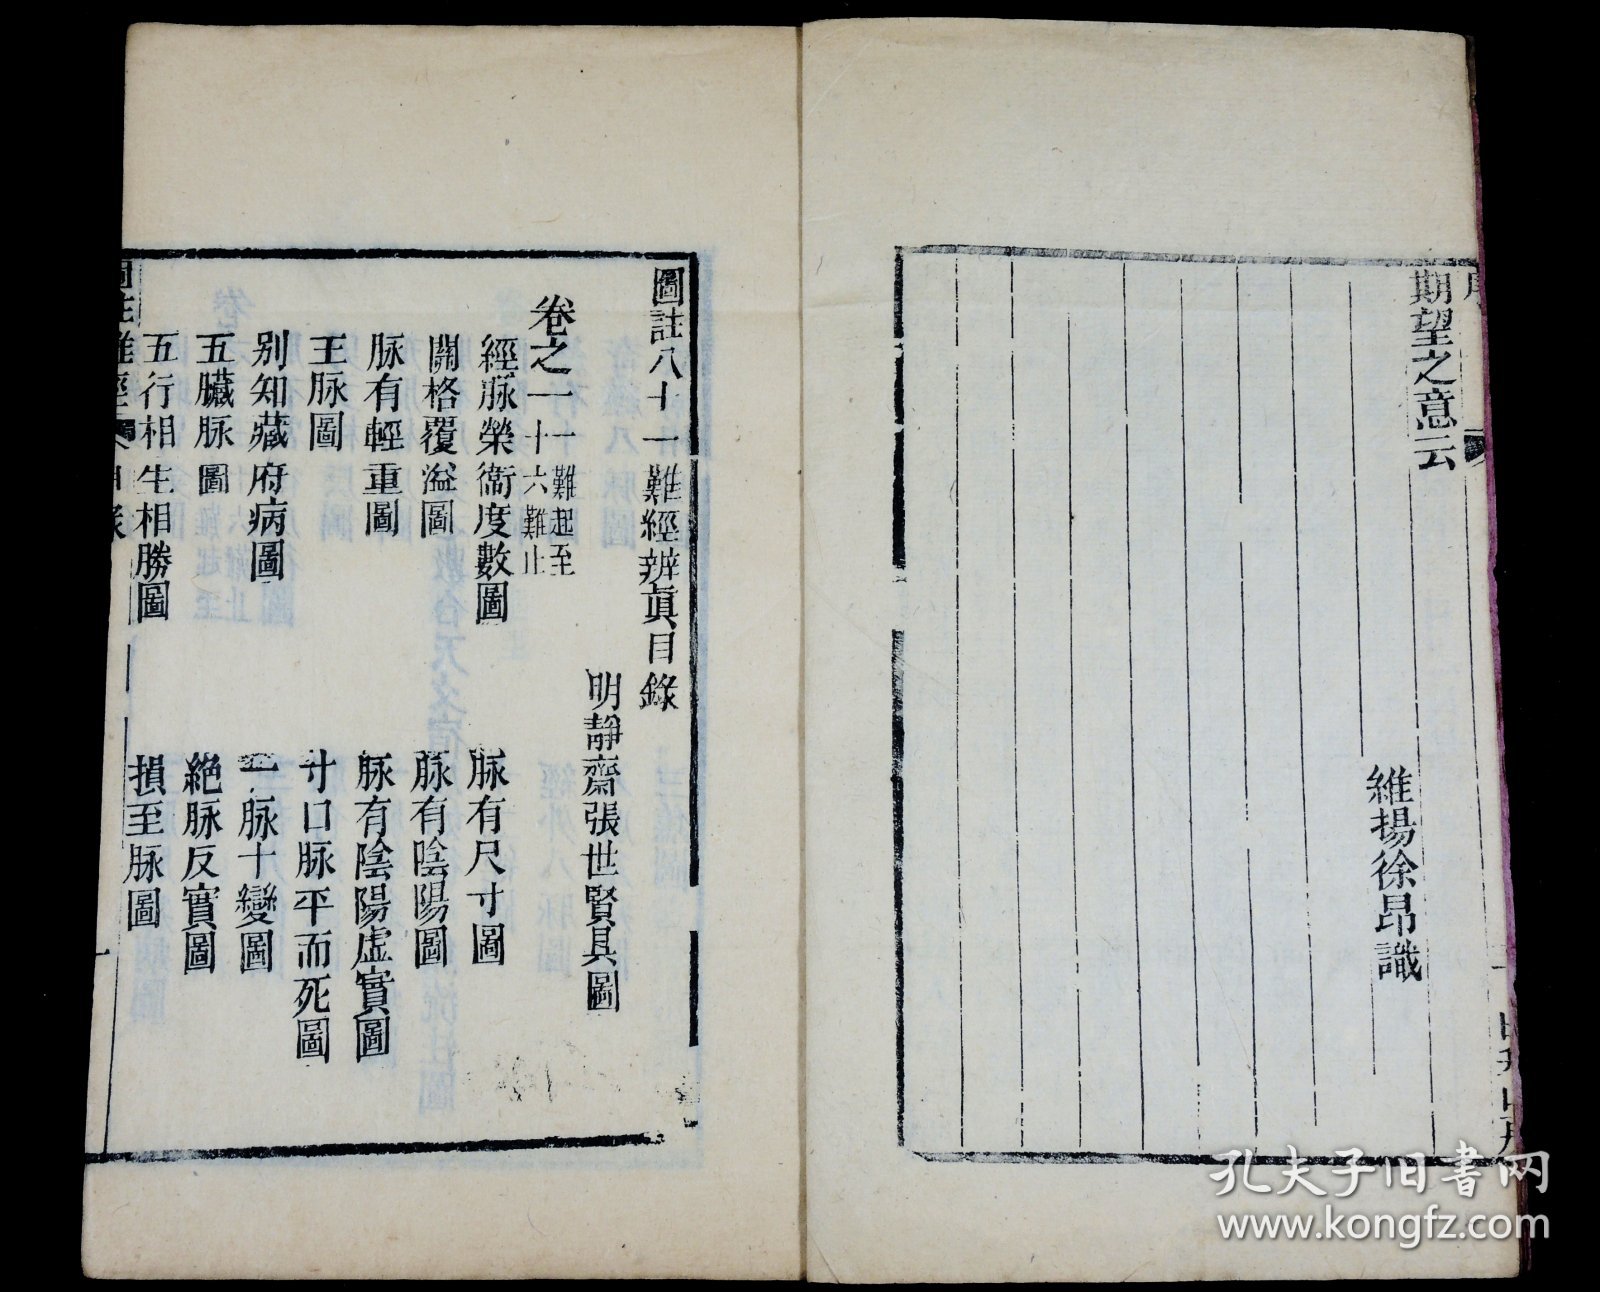 期望之意云
維揚徐昂識
圖註八十一難經辨眞目錄
明靜齋張世賢具圖
卷之一 一難起至
十六難止
經脉榮衞度數圖
脉有尺寸圖
關格覆溢圖
脉有陰陽圖
脉有輕重圖
脉有陰陽虛實圖
王脉圖
寸口脉平而死圖
别知藏府病圖
一脉十變圖
五臟脉圖
絕脉反實圖
五行相生相勝圖
損至脉圖
一
孔夫子旧书网
www.kongfz.com